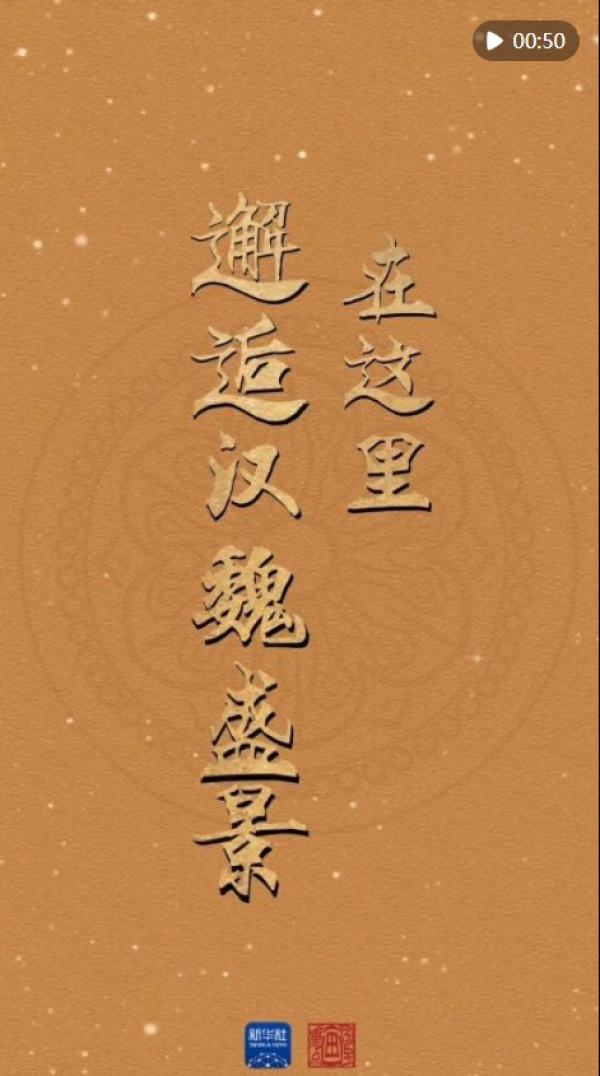 00:50
在这里
邂逅汉魏盛景
新华社
XINHUA NEWS